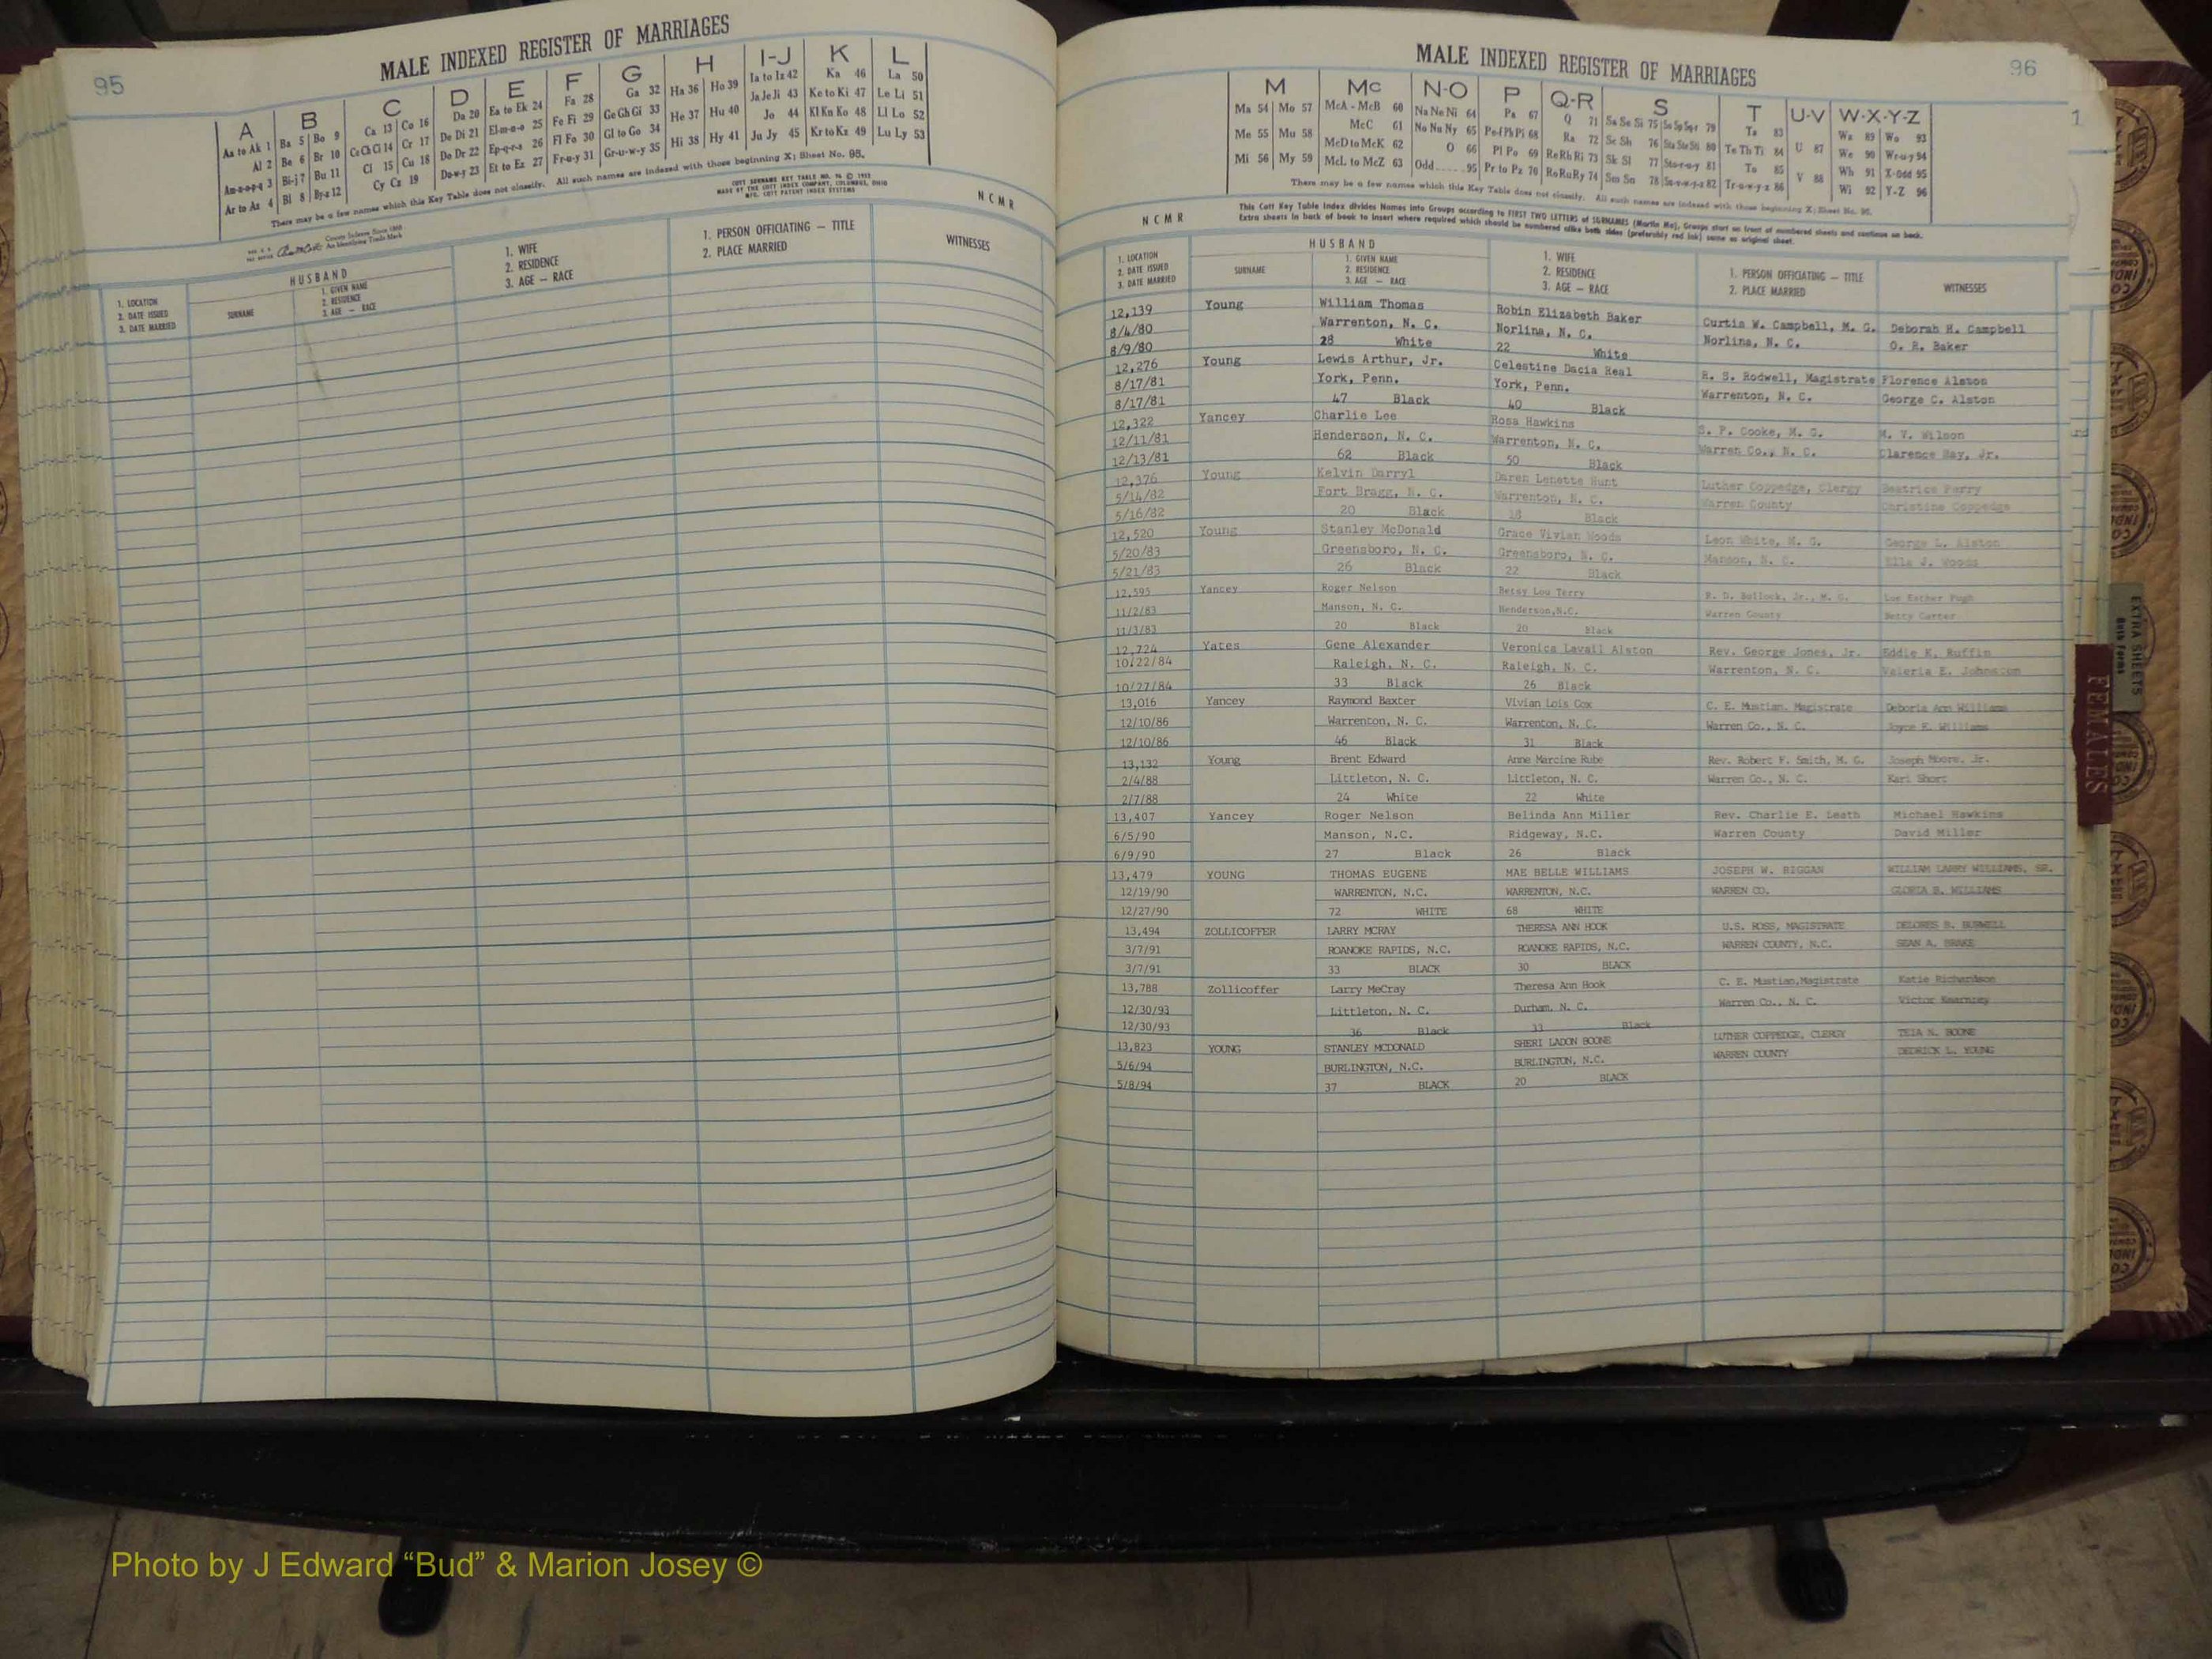 95
MALE INDEXED REGISTER OF MARRIAGES
A B C D E F G H I-J K L
Aa to Ak 1 Ba 5 Bo 9 Ca 13 Co 16 Da 20 Ea to Ek 24 Fa 28 Ga 32 Ha 36 Ho 39 Ia to Iz 42 Ka 46 La 50
Al 2 Be 6 Br 10 Ce Ch Ci 14 Cr 17 De Di 21 El-m-n-o 25 Fe Fi 29 Ge Gh Gi 33 He 37 Hu 40 Ja Je Ji 43 Ke to Ki 47 Le Li 51
Am-n-o-p-q 3 Bi-j 7 Bu 11 Cl 15 Cu 18 Do Dr 22 Ep-q-r-s 26 Fl Fo 30 Gl to Go 34 Hi 38 Hy 41 Jo 44 Kl Kn Ko 48 Ll Lo 52
Ar to Az 4 Bl 8 By-z 12 Cy Cz 19 Du-w-y 23 Et to Ez 27 Fr-u-y 31 Gr-u-w-y 35 Ju Jy 45 Kr to Kz 49 Lu Ly 53
There may be a few names which this Key Table does not classify. All such names are indexed with those beginning X; Sheet No. 95.
COTT SURNAME KEY TABLE NO. 96 © 1953
MADE BY THE COTT INDEX COMPANY, COLUMBUS, OHIO
MFG. COTT PATENT INDEX SYSTEMS
County Indexes Since 1888
An Identifying Trade Mark
NCMR
1. LOCATION
2. DATE ISSUED
3. DATE MARRIED
HUSBAND
SURNAME
1. GIVEN NAME
2. RESIDENCE
3. AGE — RACE
1. WIFE
2. RESIDENCE
3. AGE — RACE
1. PERSON OFFICIATING — TITLE
2. PLACE MARRIED
WITNESSES
MALE INDEXED REGISTER OF MARRIAGES
96
M Mc N-O P Q-R S T U-V W-X-Y-Z
Ma 54 Mo 57 McA - McB 60 Na Ne Ni 64 Pa 67 Q 71 Sa Se Si 75 79 Ta 83 U 87 Wa 89 Wo 93
Me 55 Mu 58 McC 61 No Nu Ny 65 Pe-f Ph Pi 68 Ra 72 Sc Sh 76 Sta Ste Sti 80 Te Th Ti 84 We 90 Wr-u-y 94
Mi 56 My 59 McD to McK 62 O 66 Pl Po 69 Re Rh Ri 73 Sk Sl 77 Sto-r-u-y 81 To 85 V 88 Wh 91 X-Odd 95
McL to McZ 63 Odd 95 Pr to Pz 70 Ro Ru Ry 74 Sm Sn 78 Su-v-w-y-z 82 Tr-u-w-y-z 86 Wi 92 Y-Z 96
There may be a few names which this Key Table does not classify. All such names are indexed with those beginning X; Sheet No. 95.
This Cott Key Table Index divides Names into Groups according to FIRST TWO LETTERS of SURNAMES (Martin Ma), Groups start on front of numbered sheets and continue on back.
Extra sheets in back of book to insert where required which should be numbered alike both sides (preferably red ink) same as original sheet.
NCMR
1. LOCATION
2. DATE ISSUED
3. DATE MARRIED
HUSBAND
SURNAME
1. GIVEN NAME
2. RESIDENCE
3. AGE — RACE
1. WIFE
2. RESIDENCE
3. AGE — RACE
1. PERSON OFFICIATING — TITLE
2. PLACE MARRIED
WITNESSES
12,139 Young William Thomas Robin Elizabeth Baker Curtis W. Campbell, M. G. Deborah H. Campbell
8/4/80 Warrenton, N. C. Norlina, N. C. Norlina, N. C. O. R. Baker
8/9/80 28 White 22 White
12,276 Young Lewis Arthur, Jr. Celestine Dacia Real R. S. Rodwell, Magistrate Florence Alston
8/17/81 York, Penn. York, Penn. Warrenton, N. C. George C. Alston
8/17/81 47 Black 40 Black
12,322 Yancey Charlie Lee Rosa Hawkins S. P. Cooke, M. G. M. V. Wilson
12/11/81 Henderson, N. C. Warrenton, N. C. Warren Co., N. C. Clarence Hay, Jr.
12/13/81 62 Black 50 Black
12,376 Young Kelvin Darryl Daren Lenette Hunt Luther Coppedge, Clergy Beatrice Perry
5/14/82 Fort Bragg, N. C. Warrenton, N. C. Warren County Christine Coppedge
5/16/82 20 Black 18 Black
12,520 Young Stanley McDonald Grace Vivian Woods Leon White, M. G. George L. Alston
5/20/83 Greensboro, N. C. Greensboro, N. C. Manson, N. C. Ella J. Woods
5/21/83 26 Black 22 Black
12,595 Yancey Roger Nelson Betsy Lou Terry R. D. Bullock, Jr., M. G. Lue Esther Pugh
11/2/83 Manson, N. C. Henderson, N.C. Warren County Betty Carter
11/3/83 20 Black 20 Black
12,724 Yates Gene Alexander Veronica Lavail Alston Rev. George Jones, Jr. Eddie K. Ruffin
10/22/84 Raleigh, N. C. Raleigh, N. C. Warrenton, N. C. Valeria E. Johnston
10/27/84 33 Black 26 Black
13,016 Yancey Raymond Baxter Vivian Lois Cox C. E. Mustian, Magistrate Deboria Ann Williams
12/10/86 Warrenton, N. C. Warrenton, N. C. Warren Co., N. C. Joyce E. Williams
12/10/86 46 Black 31 Black
13,132 Young Brent Edward Anne Marcine Rube Rev. Robert F. Smith, M. G. Joseph Moore, Jr.
2/4/88 Littleton, N. C. Littleton, N. C. Warren Co., N. C. Kari Short
2/7/88 24 White 22 White
13,407 Yancey Roger Nelson Belinda Ann Miller Rev. Charlie E. Leath Michael Hawkins
6/5/90 Manson, N.C. Ridgeway, N.C. Warren County David Miller
6/9/90 27 Black 26 Black
13,479 YOUNG THOMAS EUGENE MAE BELLE WILLIAMS JOSEPH W. RIGGAN WILLIAM LARRY WILLIAMS, SR.
12/19/90 WARRENTON, N.C. WARRENTON, N.C. WARREN CO. GLORIA B. WILLIAMS
12/27/90 72 WHITE 68 WHITE
13,494 ZOLLICOFFER LARRY MCRAY THERESA ANN HOOK U.S. ROSS, MAGISTRATE DELORES B. BURWELL
3/7/91 ROANOKE RAPIDS, N.C. ROANOKE RAPIDS, N.C. WARREN COUNTY, N.C. SEAN A. BRAKE
3/7/91 33 BLACK 30 BLACK
13,788 Zollicoffer Larry McCray Theresa Ann Hook C. E. Mustian, Magistrate Katie Richardson
12/30/93 Littleton, N. C. Durham, N. C. Warren Co., N. C. Victor Kearney
12/30/93 36 Black 33 Black
13,823 YOUNG STANLEY MCDONALD SHERI LADON BOONE LUTHER COPPEDGE, CLERGY TEIA S. BOONE
5/6/94 BURLINGTON, N.C. BURLINGTON, N.C. WARREN COUNTY DEDRICK L. YOUNG
5/8/94 37 BLACK 20 BLACK
1
EXTRA SHEETS
Both Forms
FEMALES
Photo by J Edward “Bud” & Marion Josey ©